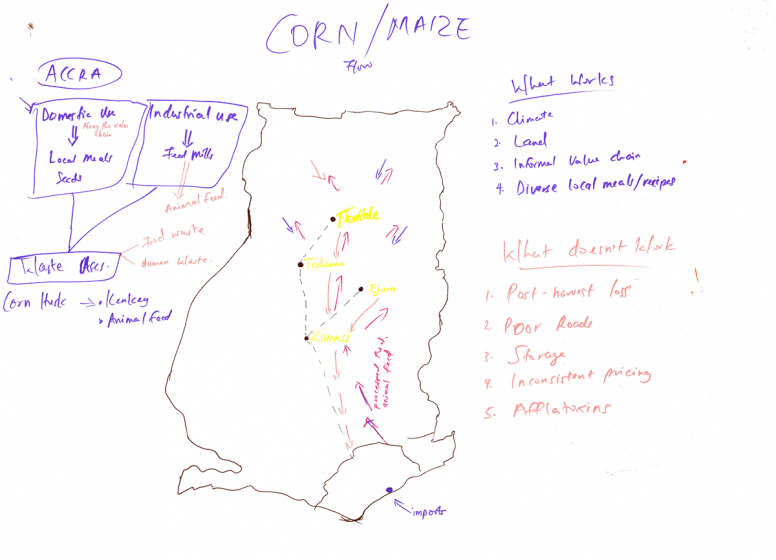 CORN/MAIZE
Flow
ACCRA
Domestic Use
Along the value
chain
Local meals
Seeds
Industrial use
Feed Mills
Animal feed.
Food waste
Human Waste.
Corn Husk → • Kenkey
• Animal Feed
Tamale
Techiman
Ejura
Kumasi
processed food,
animal feed
imports
What Works
1. Climate
2. Land
3. Informal Value chain
4. Diverse local meals/recipes
What doesn't Work
1. Post-harvest loss
2. Poor Roads
3. Storage
4. Inconsistent pricing
5. Afflatoxins